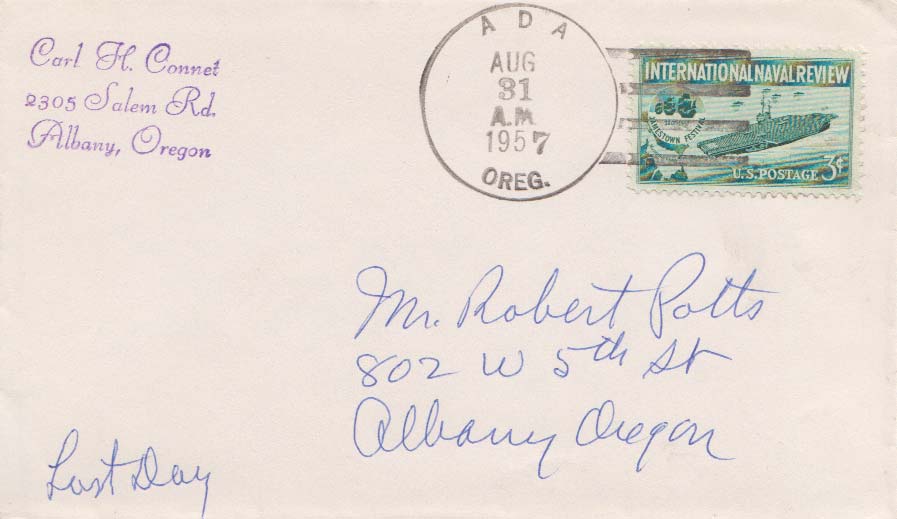 Carl H. Connet
2305 Salem Rd.
Albany, Oregon
ADA
AUG
31
A.M.
1957
OREG.
INTERNATIONAL NAVAL REVIEW
JAMESTOWN FESTIVAL
U.S. POSTAGE 3¢
Mr. Robert Potts
802 W 5th St
Albany Oregon
Last Day